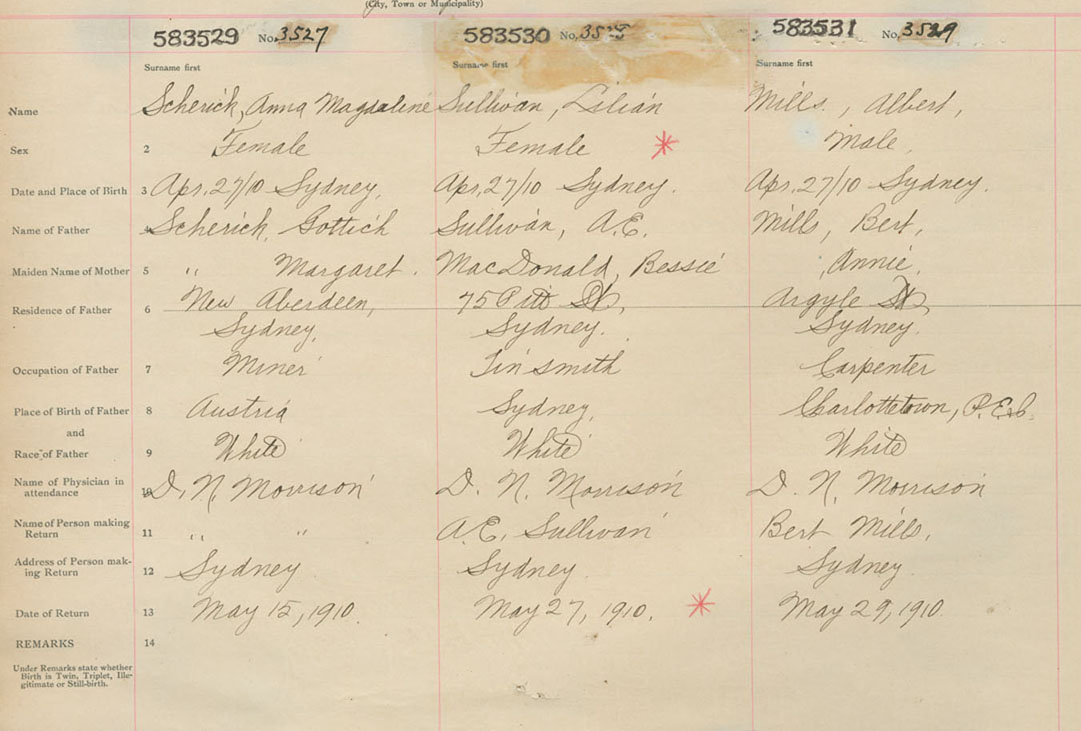 (City, Town or Municipality)
583529 No. 3527 583530 No. 583531 No. 3529
Surname first Surname first Surname first
Name Scherick, Anna Magdaline Sullivan, Lilian Mills, Albert,
Sex 2 Female Female * Male.
Date and Place of Birth 3 Apr. 27/10 Sydney. Apr. 27/10 Sydney. Apr. 27/10 Sydney.
Name of Father 4 Scherick, Gottich Sullivan, A.E. Mills, Bert,
Maiden Name of Mother 5 " Margaret. MacDonald, Bessie Annie.
Residence of Father 6 New Aberdeen, 75 Pitt St, Argyle St,
Sydney. Sydney. Sydney.
Occupation of Father 7 Miner Tinsmith Carpenter
Place of Birth of Father 8 Austria Sydney, Charlottetown, P.E.I.
and
Race of Father 9 White White White
Name of Physician in 10 D. N. Morrison D. N. Morrison D. N. Morrison
attendance
Name of Person making 11 " " A.E. Sullivan Bert Mills.
Return
Address of Person mak- 12 Sydney Sydney Sydney
ing Return
Date of Return 13 May 15, 1910. May 27, 1910. * May 29, 1910.
REMARKS 14
Under Remarks state whether
Birth is Twin, Triplet, Ille-
gitimate or Still-birth.